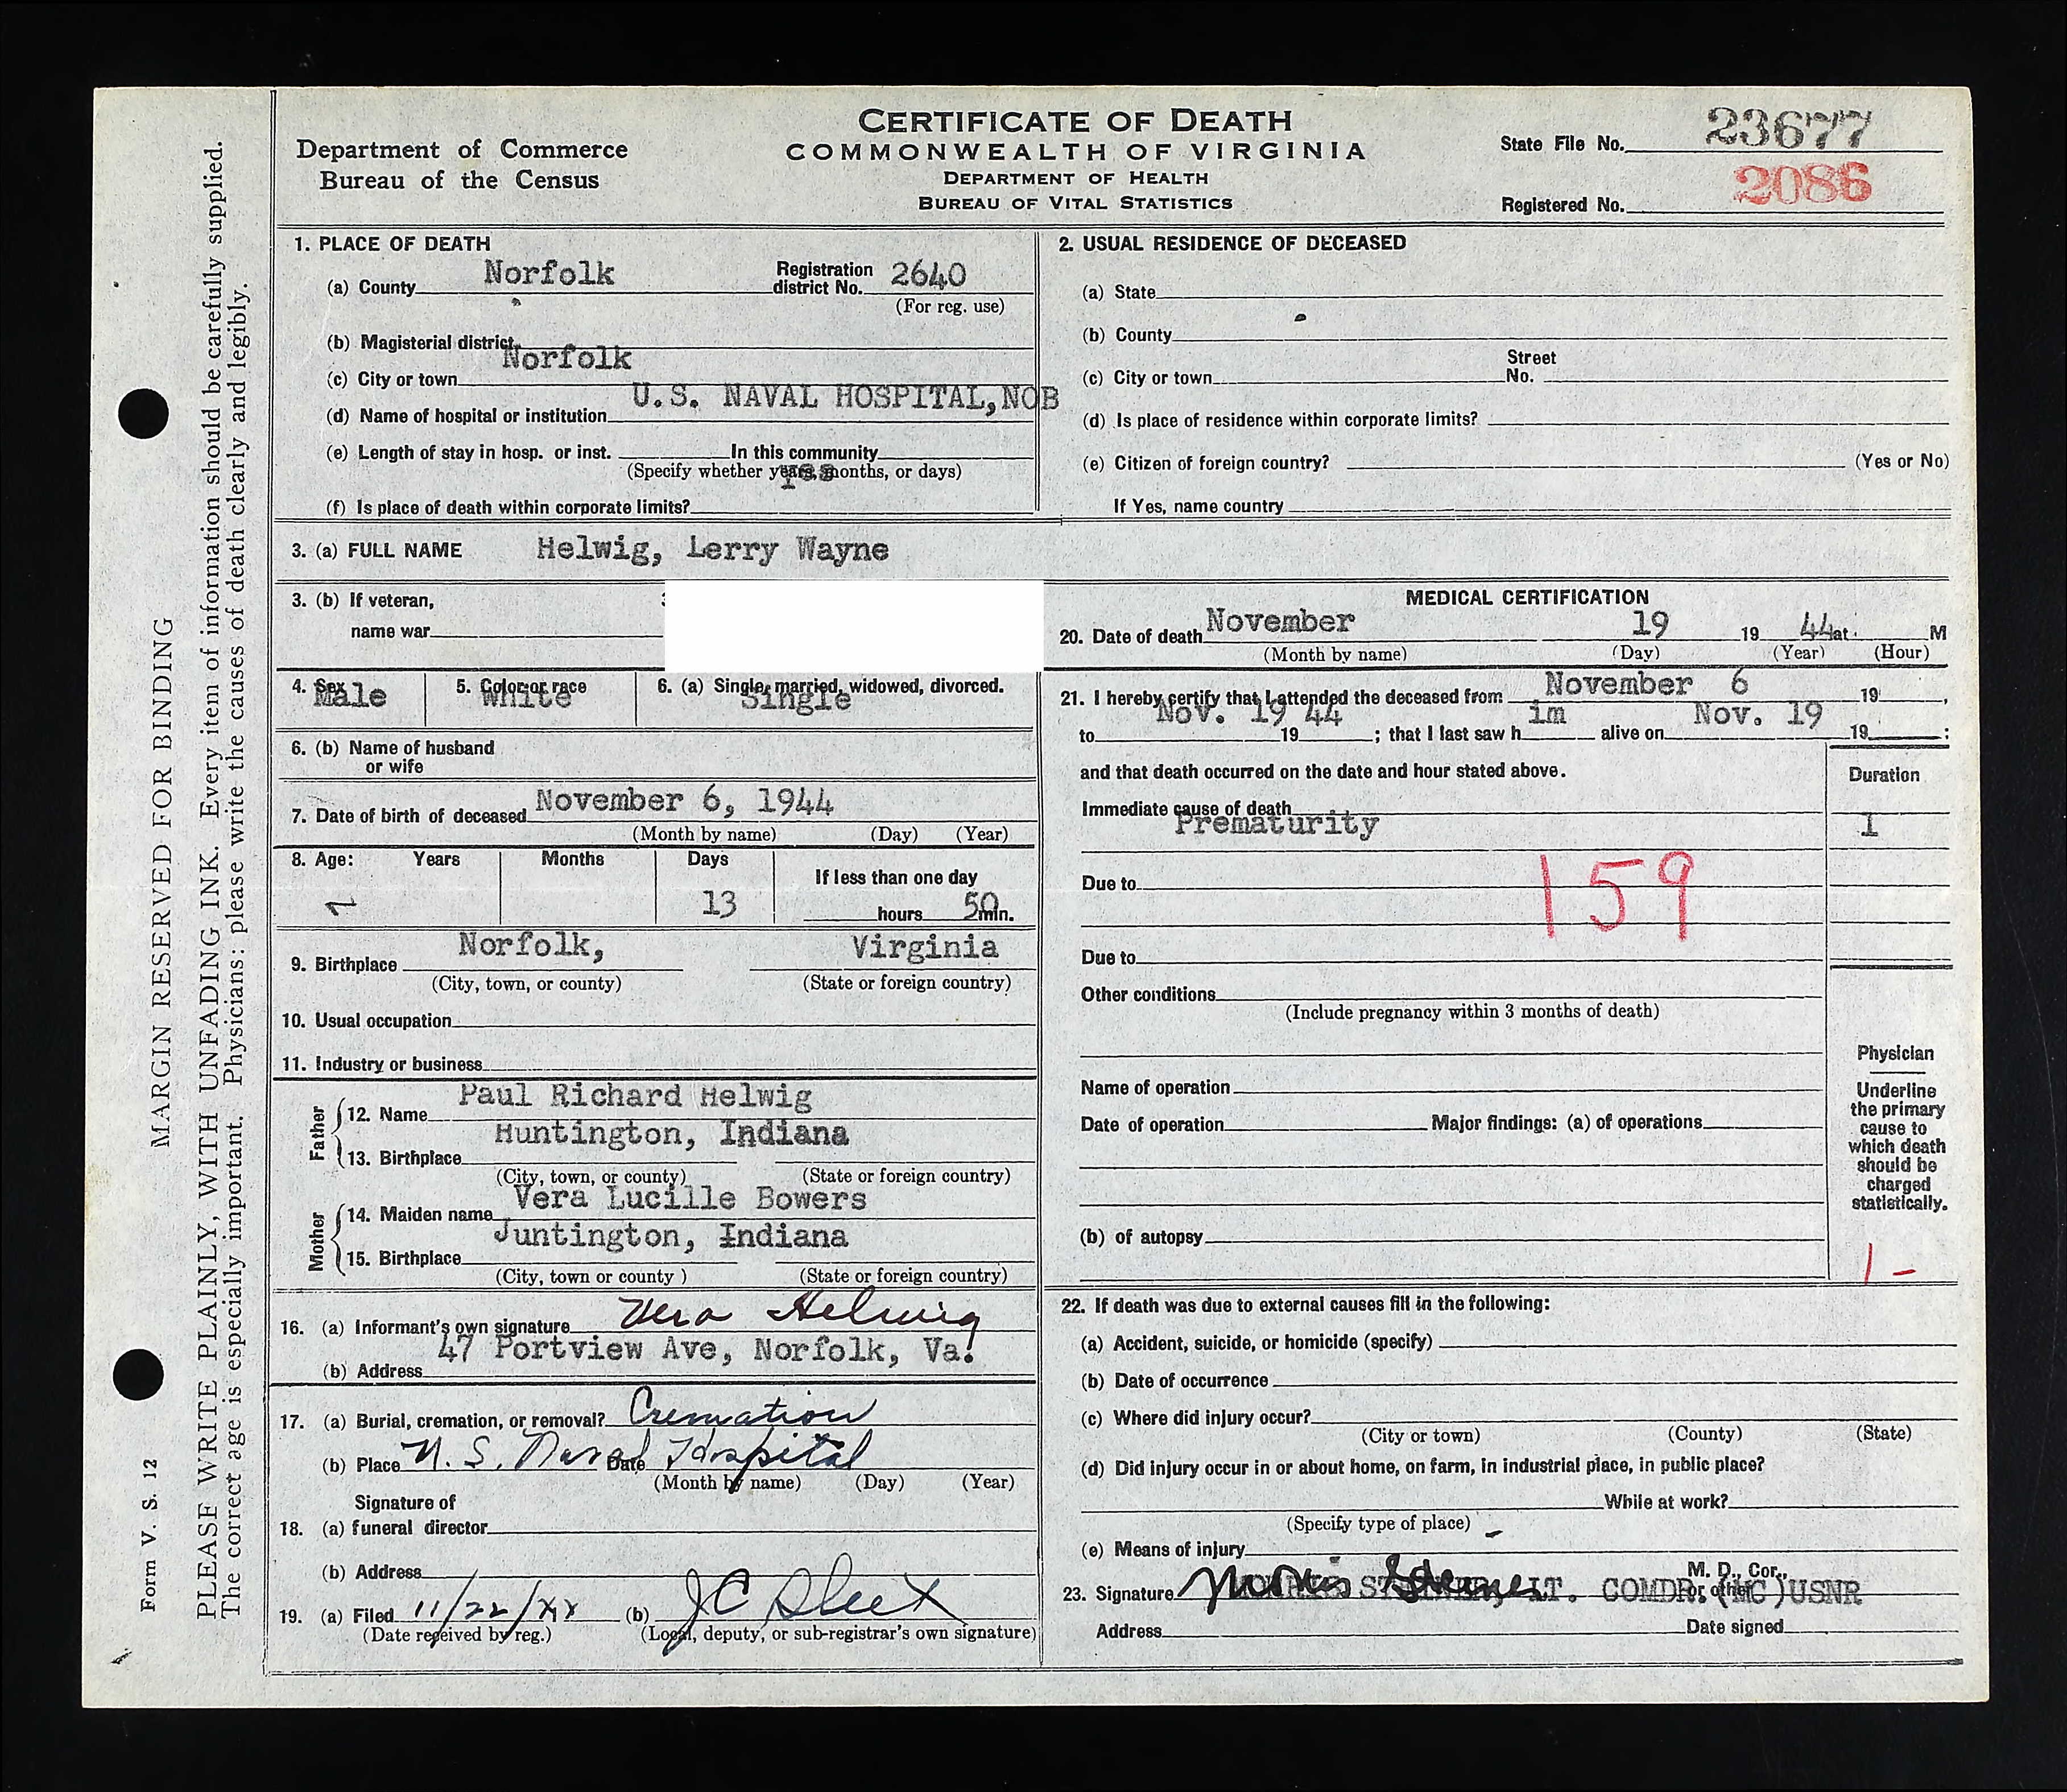 CERTIFICATE OF DEATH
COMMONWEALTH OF VIRGINIA
DEPARTMENT OF HEALTH
BUREAU OF VITAL STATISTICS
Department of Commerce
Bureau of the Census
State File No. 23677
Registered No. 2086
MARGIN RESERVED FOR BINDING
PLEASE WRITE PLAINLY, WITH UNFADING INK. Every item of information should be carefully supplied.
The correct age is especially important. Physicians: please write the causes of death clearly and legibly.
Form V. S. 12
1. PLACE OF DEATH
(a) County Norfolk Registration district No. 2640
(For reg. use)
(b) Magisterial district
(c) City or town Norfolk
(d) Name of hospital or institution U.S. NAVAL HOSPITAL, NOB
(e) Length of stay in hosp. or inst. In this community
(Specify whether years, months, or days)
(f) Is place of death within corporate limits? yes
2. USUAL RESIDENCE OF DECEASED
(a) State
(b) County
(c) City or town Street No.
(d) Is place of residence within corporate limits?
(e) Citizen of foreign country? (Yes or No)
If Yes, name country
3. (a) FULL NAME Helwig, Lerry Wayne
3. (b) If veteran,
name war
4. Sex Male
5. Color or race White
6. (a) Single, married, widowed, divorced. Single
6. (b) Name of husband
or wife
7. Date of birth of deceased November 6, 1944
(Month by name) (Day) (Year)
8. Age: Years Months Days If less than one day
13 hours 50 min.
9. Birthplace Norfolk, Virginia
(City, town, or county) (State or foreign country)
10. Usual occupation
11. Industry or business
Father
12. Name Paul Richard Helwig
13. Birthplace Huntington, Indiana
(City, town, or county) (State or foreign country)
Mother
14. Maiden name Vera Lucille Bowers
15. Birthplace Juntington, Indiana
(City, town or county ) (State or foreign country)
16. (a) Informant's own signature Vera Helwig
(b) Address 47 Portview Ave, Norfolk, Va.
17. (a) Burial, cremation, or removal? Cremation
(b) Place U. S. Naval Hospital Date
(Month by name) (Day) (Year)
Signature of
18. (a) funeral director
(b) Address
19. (a) Filed 11/22/44 (b) J C Sleet
(Date received by reg.) (Local, deputy, or sub-registrar's own signature)
MEDICAL CERTIFICATION
20. Date of death November 19 1944 at M
(Month by name) (Day) (Year) (Hour)
21. I hereby certify that I attended the deceased from November 6 19 ,
to Nov. 19 19 44 ; that I last saw h im alive on Nov. 19 19 ;
and that death occurred on the date and hour stated above.
Duration
Immediate cause of death
Prematurity 1
159
Due to
Due to
Other conditions
(Include pregnancy within 3 months of death)
Name of operation
Date of operation Major findings: (a) of operations
(b) of autopsy
Physician
Underline
the primary
cause to
which death
should be
charged
statistically.
1 -
22. If death was due to external causes fill in the following:
(a) Accident, suicide, or homicide (specify)
(b) Date of occurrence
(c) Where did injury occur?
(City or town) (County) (State)
(d) Did injury occur in or about home, on farm, in industrial place, in public place?
While at work?
(Specify type of place)
(e) Means of injury
M. D., Cor.,
or other
23. Signature LT. COMDR. (MC)USNR
Address Date signed